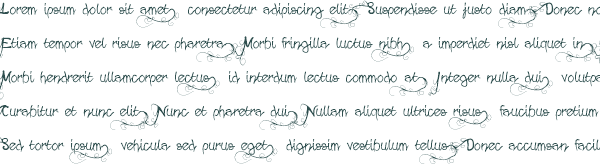 Lorem ipsum dolor sit amet, consectetur adipiscing elit. Suspendisse ut justo diam. Donec no
Etiam tempor vel risus nec pharetra. Morbi fringilla luctus nibh, a imperdiet nisl aliquet in
Morbi hendrerit ullamcorper lectus, id interdum lectus commodo at. Integer nulla dui, volutpa
Curabitur et nunc elit. Nunc et pharetra dui. Nullam aliquet ultrices risus, faucibus pretium
Sed tortor ipsum, vehicula sed purus eget, dignissim vestibulum tellus. Donec accumsan facil